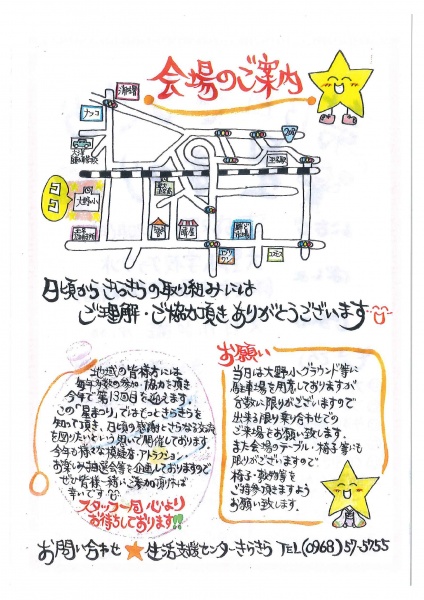 会場のご案内
ナフコ
208
ココ
旧大野小
コスモス
日頃からきらきらの取り組みには
ご理解・ご協力頂きありがとうございます
地域の皆様方には
毎年多数の参加・協力を頂き
今年で第13回を迎えます。
この「星まつり」でもっときらきらを
知って頂き、日頃の感謝とさらなる交流
を図りたいという思いで開催しております
今年も様々な模擬店・アトラクション、
お楽しみ抽選会等を企画しておりますので
ぜひ皆様一緒にご参加頂ければ
幸いです
スタッフ一同心より
お待ちしております!!
お願い
当日は大野小グラウンド等に
駐車場を用意しておりますが
台数に限りがございますので
出来る限り乗り合わせでの
ご来場をお願い致します。
また会場のテーブル・椅子等にも
限りがございますので
椅子・敷物等を
ご持参頂きますよう
お願い致します。
お問い合わせ★生活支援センターきらきら TEL(0968)57-5755